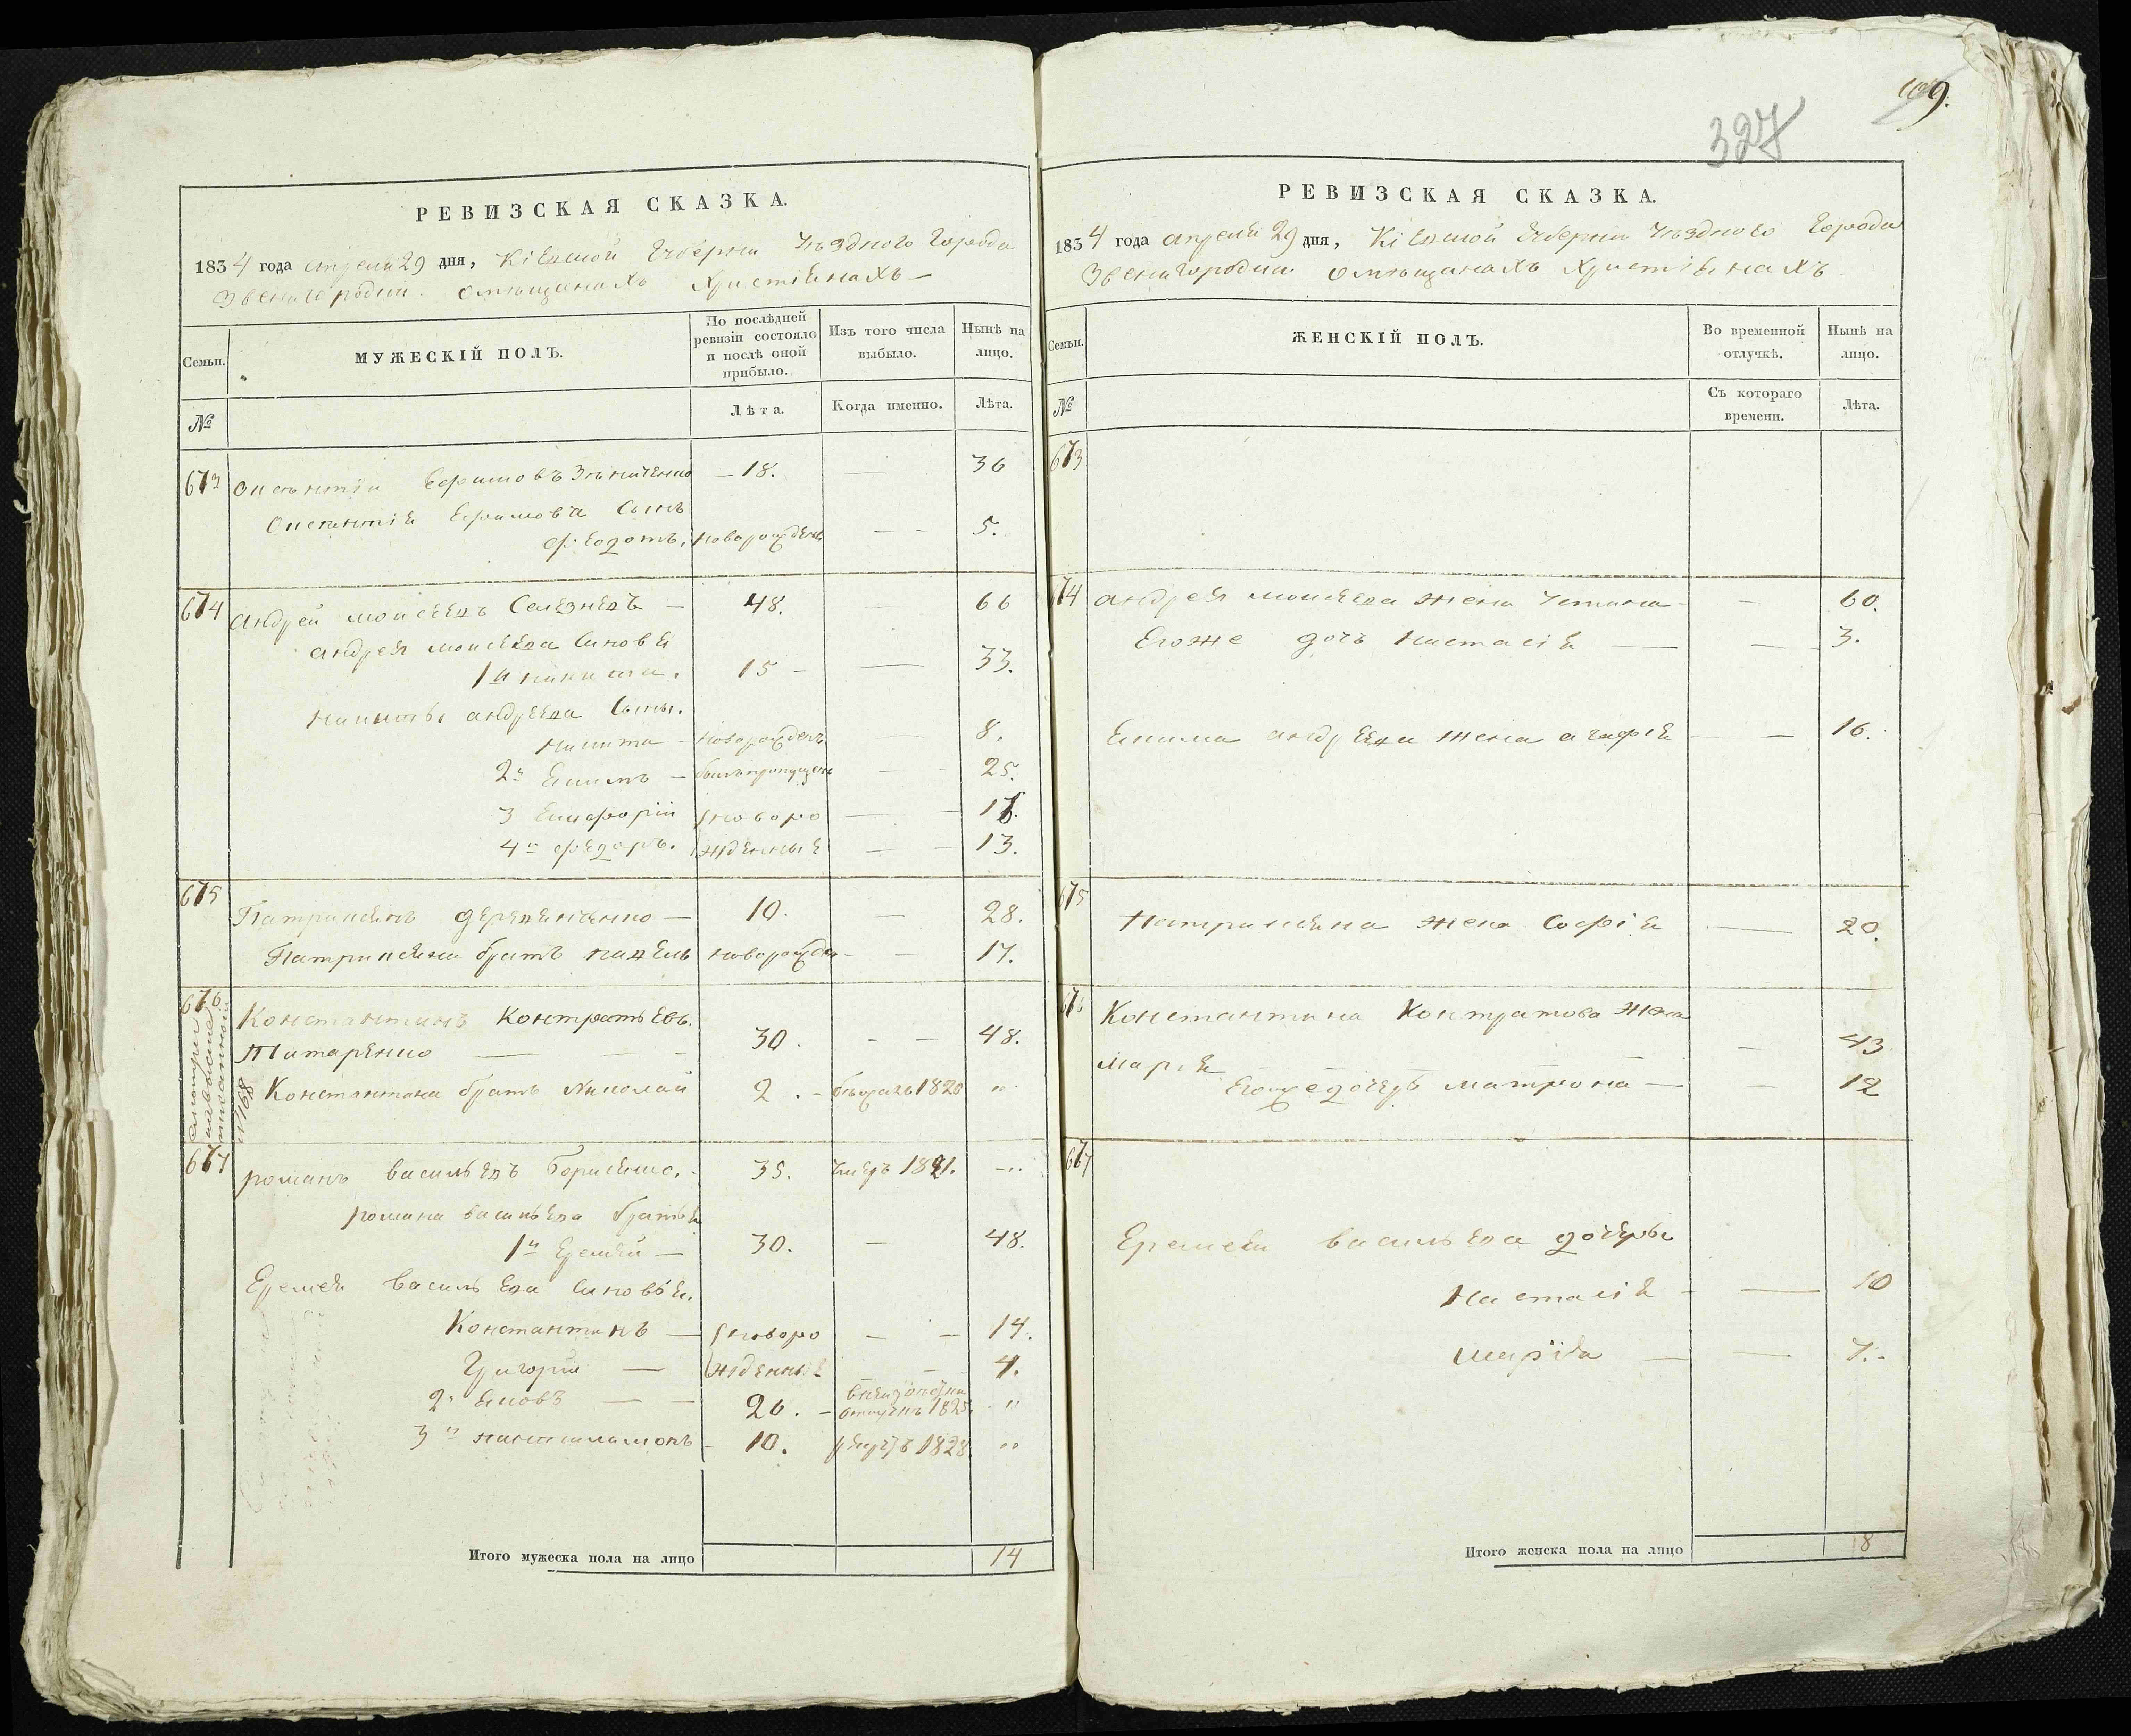 109.
327
РЕВИЗСКАЯ СКАЗКА.
1834 года апреля 29 дня, Кіевской Губерніи Уѣзднаго Города
Звенигородки о мѣщанахъ Христіянахъ —
Семьи.
МУЖЕСКІЙ ПОЛЪ.
По послѣдней ревизіи состояло и послѣ оной прибыло.
Изъ того числа выбыло.
Нынѣ на лицо.
№
Лѣта.
Когда именно.
Лѣта.
673 Ефимовъ — 18. — 36
Ефимова Сынъ
Федотъ, новорожденъ — - 5.
674 Андрей Моисеевъ Селезневъ — 48. 66
Андрея Моисеева Синовя
1й Никита. 15 - — 33.
Никиты Андреева Сынъ.
Никита - новорожденъ — 8.
2й Екимъ — былъ пропущенъ — 25.
3 новоро — 
4й Федоръ. жденные — 13.
675
Патрикей — 10. — 28.
брать Павелъ новорожден - — 17.
676 Константинъ Контратьевъ.
Титаренко — — - 30. - - 48.
Константина братъ Николай 2. - бѣжалъ 1820 "
смотри
№ 168
677 Романъ Васильевъ Борисенко. - 35. умеръ 1821. - "
Романа Васильева братья
1й Еремей — 30. — 48.
Еремея Васильева Синовья.
Константинъ — новоро — — 14.
Григорій — жденные — 4.
2й — — 20. - 1825. "
3й Пантилимонъ - 10. рекрутъ 1828. "
Итого мужеска пола на лицо 14
РЕВИЗСКАЯ СКАЗКА.
1834 года апреля 29 дня, Кіевской Губерніи Уѣзднаго Города
Звенигородки о мѣщанахъ Христіянахъ
Семьи.
ЖЕНСКІЙ ПОЛЪ.
Во временной отлучкѣ.
Нынѣ на лицо.
№
Съ котораго времени.
Лѣта.
673
674 Андрея Моисеева жена Устина - — 60.
Егоже дочь Настасія — — 3.
Екима Андреева жена Агафія — — 16.
675
Патрикея жена Софія — 20.
676 Константина Контратова жена
Марія — 43
Егоже дочерь Матрона — — 12
677
Еремея Васильева дочеры
Настасія - — 10
Марія — — 7. -
Итого женска пола на лицо 8